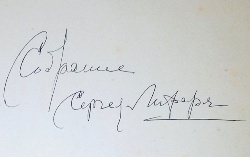 Собрание
Сергея Лифаря